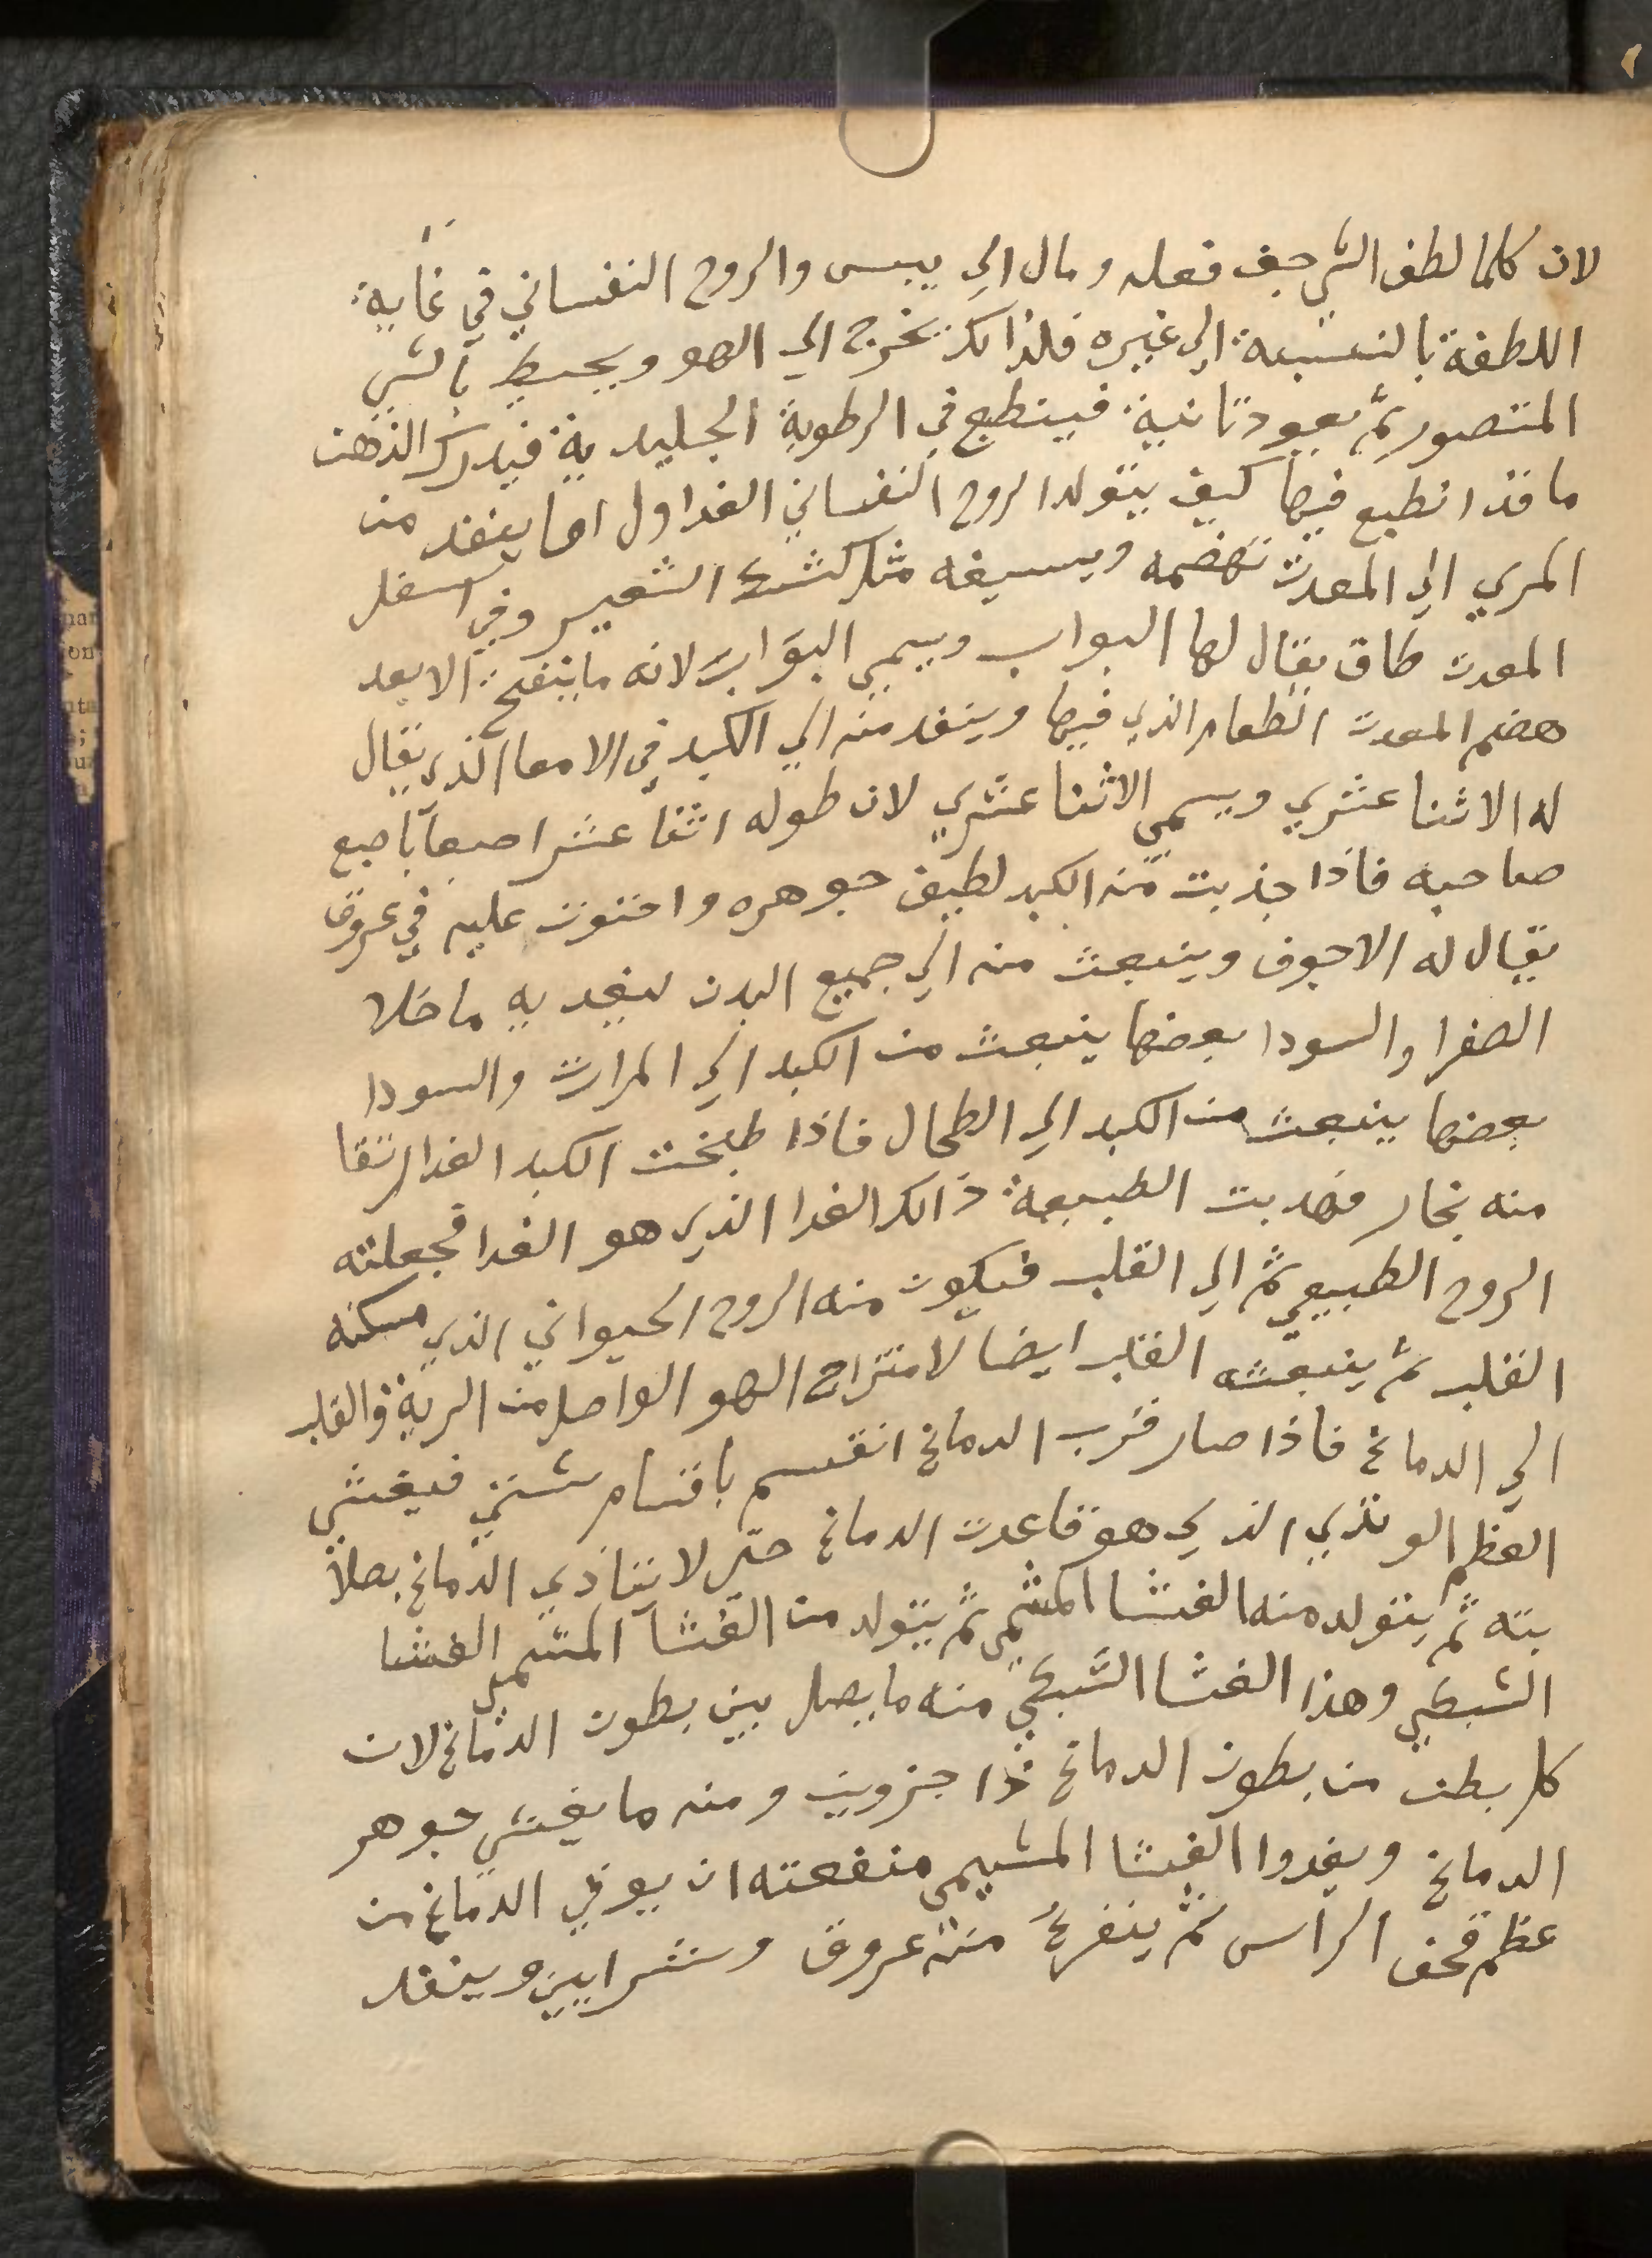 لان كلما لطف الشي جف فعله ومال الي يبس والروح النفساني في غاية
اللطفة بالنسبة الي غيره فلذالك تخرج الي الهو ويحيط بالشي
المتصور ثم يعود ثانية فينطبع في الرطوبة الجليدية فيدرك الذهن
ما قد انطبع فيها كيف يتولد الروح النفساني الغدا اول اما ينفد من
المري الي المعدت تهضمه ويسيغه مثل كشك الشعير وفي اسفل
المعدت طاق يقال لها البواب ويسمي البوّاب لانه ما يتفتح الا بعد
هضم المعدت الطعام الذي فيها وينفد منه الي الكبد في الامعا الذي يقال
له الاثنا عشري ويسمي الاثنا عشري لان طوله اثنا عشر اصبعا باصبع
صاحبه فاذا جذبت منه الكبد لطيف جوهره واحتوت عليه في عروق
يقال له الاجوف وينبعث منه الي جميع البدن ليغديه ما خلا
الصفرا والسودا بعضها ينبعث من الكبد الي المرارت والسودا
بعضها ينبعث من الكبد الي الطحال فاذا طبخت الكبد الغدا ارتقا
منه بخار فهدبت الطبيعة ذالك الغدا الذي هو الغدا فجعلته
الروح الطبيعي ثم الي القلب فيكون منه الروح الحيواني الذي مسكنه
القلب ثم ينبعثه القلب ايضا لامتزاج الهو الواصل من الرية والقلب
الي الدماغ فاذا صار قرب الدماغ انقسم باقسام شتي فيغشي
العظم الوتدي الذي هو قاعدت الدماغ حتي لا يتاذي الدماغ بصلا
بته ثم يتولد منه الغشا المشمي ثم يتولد من الغشا المشمي الغشا
الشبكي وهذا الغشا الشبكي منه ما يصل بين بطون الدماغ لان
كل بطن من بطون الدماغ ذا جزوين ومنه ما يغشي جوهر
الدماغ ويغدوا الغشا المشيمي منفعته ان يوقي الدماغ من
عظم قحف الراس ثم ينفرع منه عروق وشرايين وينفد